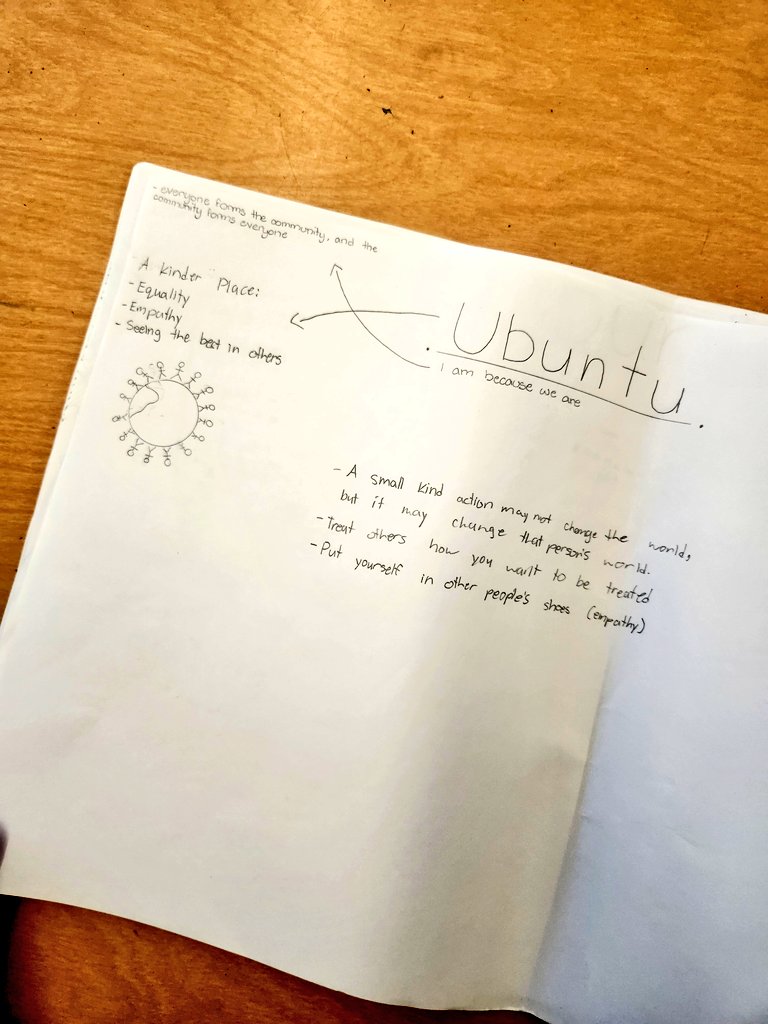 - everyone forms the community, and the
community forms everyone
A Kinder Place:
- Equality
- Empathy
- Seeing the best in others
Ubuntu.
i am because we are
- A small kind action may not change the world,
but it may change that person's world.
- Treat others how you want to be treated
- Put yourself in other people's shoes (empathy)